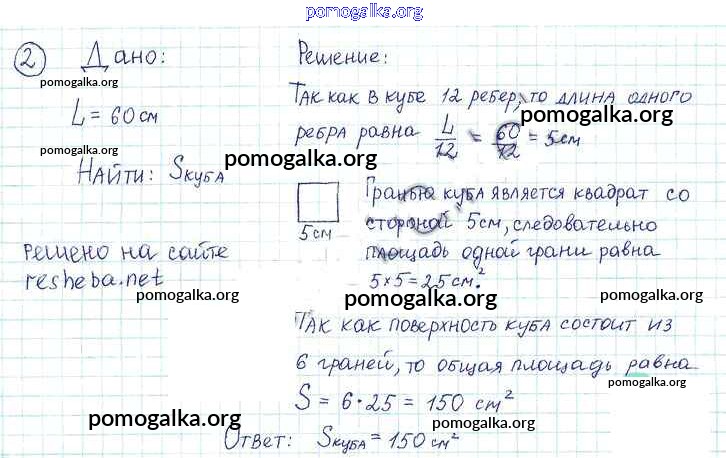 pomogalka.org
2 Дано:
pomogalka.org
L = 60 см
pomogalka.org
Найти: Sкуба
Решено на сайте
resheba.net
pomogalka.org
Решение:
Так как в кубе 12 ребер, то длина одного
pomogalka.org
ребра равна L/12 = 60/12 = 5см
pomogalka.org
5 см
Гранью куба является квадрат со
стороной 5см, следовательно
площадь одной грани равна
5×5=25см²
pomogalka.org pomogalka.org
Так как поверхность куба состоит из
6 граней, то общая площадь равна
S = 6·25 = 150 см²
pomogalka.org
Ответ: Sкуба = 150 см²